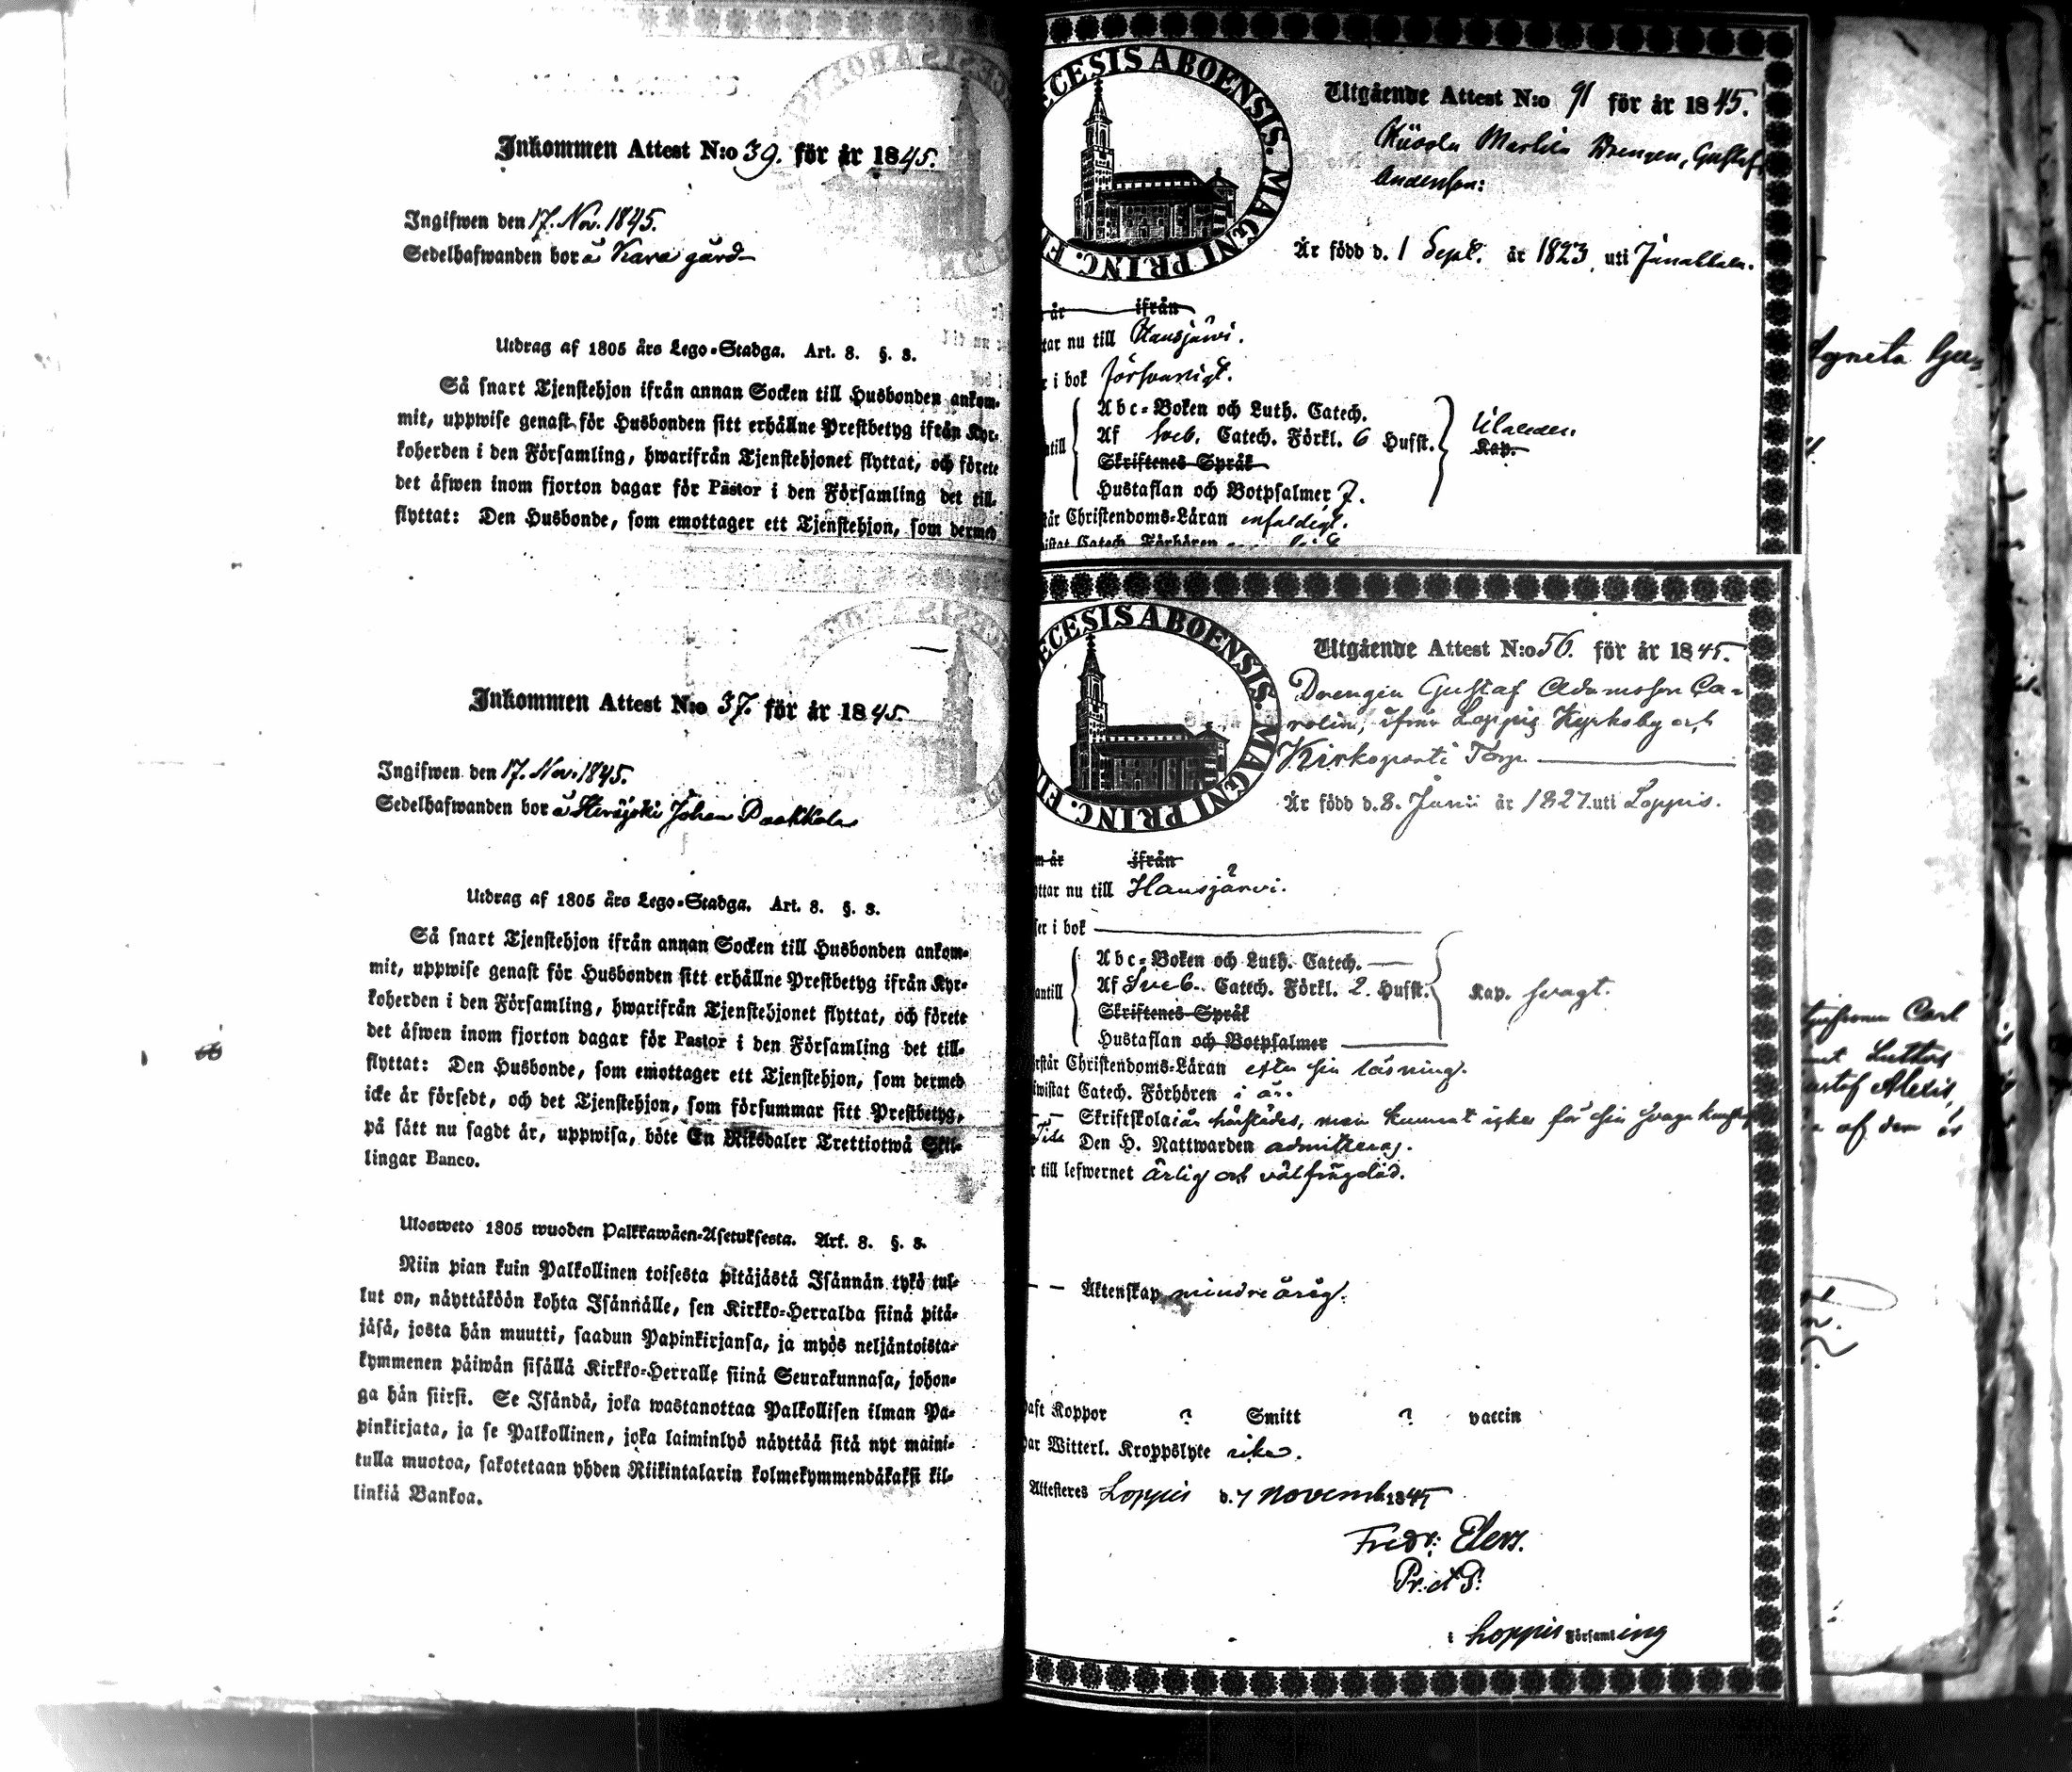 Inkommen Attest N:o 39. för år 1845.
Ingifwen den 17. Nov. 1845.
Sedelhafwanden bor å Kara gård
Utdrag af 1805 års Lego-Stadga. Art. 8. §. 3.
Så snart Tjenstehjon ifrån annan Socken till Husbonden ankom-
mit, uppwise genast för Husbonden sitt erhållne Prestbetyg ifrån Kyr-
koherden i den Församling, hwarifrån Tjenstehjonet flyttat, och förete
det äfwen inom fjorton dagar för Pastor i den Församling det till-
flyttat: Den Husbonde, som emottager ett Tjenstehjon, som dermed
Inkommen Attest N:o 37. för år 1845.
Ingifwen den 17. Nov. 1845.
Sedelhafwanden bor å Johan
Utdrag af 1805 års Lego-Stadga. Art. 8. §. 3.
Så snart Tjenstehjon ifrån annan Socken till Husbonden ankom-
mit, uppwise genast för Husbonden sitt erhållne Prestbetyg ifrån Kyr-
koherden i den Församling, hwarifrån Tjenstehjonet flyttat, och förete
det äfwen inom fjorton dagar för Pastor i den Församling det till-
flyttat: Den Husbonde, som emottager ett Tjenstehjon, som dermed
icke är försedt, och det Tjenstehjon, som försummar sitt Prestbetyg,
på sätt nu sagdt är, uppwisa, böte En Riksdaler Trettiotwå Skil-
lingar Banco.
Ulosweto 1805 wuoden Palkkawäen-Asetuksesta. Art. 8. §. 3.
Niin pian kuin Palkollinen toisesta pitäjästä Isännän tykö tul-
lut on, näyttäköön kohta Isännälle, sen Kirkko-Herralda siinä pitä-
jäsä, josta hän muutti, saadun Papinkirjansa, ja myös neljäntoista-
kymmenen päiwän sisällä Kirkko-Herralle siinä Seurakunnasa, johon-
ga hän siirsi. Se Isändä, joka wastanottaa Palkollisen ilman Pa-
pinkirjata, ja se Palkollinen, joka laiminlyö näyttää sitä nyt maini-
tulla muotoa, sakotetaan yhden Riikintalarin kolmekymmendäkaksi kil-
linkiä Bankoa.
ECESIS ABOENSIS. MAGNI PRINC. FI
Utgående Attest N:o 91 för år 1845.
Drengen, Gustaf
Andersson:
Är född d. 1 Sept. år 1823, uti Janakkala.
år ifrån
tar nu till Hausjärvi.
r i bok försvarligt.
ntill
Abc-Boken och Luth. Catech.
Af Sveb. Catech. Förkl. 6 Husst.
Kap.
Skriftenes Språk
Hustaflan och Botpsalmer 7.
står Christendoms-Läran enfaldigt.
istat Catech. Förhören
ECESIS ABOENSIS. MAGNI PRINC. FI
Utgående Attest N:o 56. för år 1845.
Drengen Gustaf Adamsson Ca-
rolin, ifrån Loppis Kyrkoby och
Kirkoponti Torp
Är född d. 8. Junii år 1827. uti Loppis.
m år ifrån
yttar nu till Hausjärvi.
ser i bok
antill
Abc-Boken och Luth. Catech.
Af Sveb. Catech. Förkl. 2. Husst.
Kap. svagt.
Skriftenes Språk
Hustaflan och Botpsalmer
rstår Christendoms-Läran efter sin läsning.
iwistat Catech. Förhören i år.
Skriftskola i år härstädes, men kunnat icke för sin svaga kunskap
Den H. Nattwarden admitteras.
r till lefwernet ärlig och välfrägdad.
Äktenskap minderårig.
haft Koppor ? Smitt ? vaccin
har Witterl. Kroppslyte icke.
Attesteres Loppis d. 7 Novemb. 1845
Fredr: Elers.
Pr. et P.
i Loppis Församling
Agneta Gu-
Carl
Gustaf Alexis,
af den är